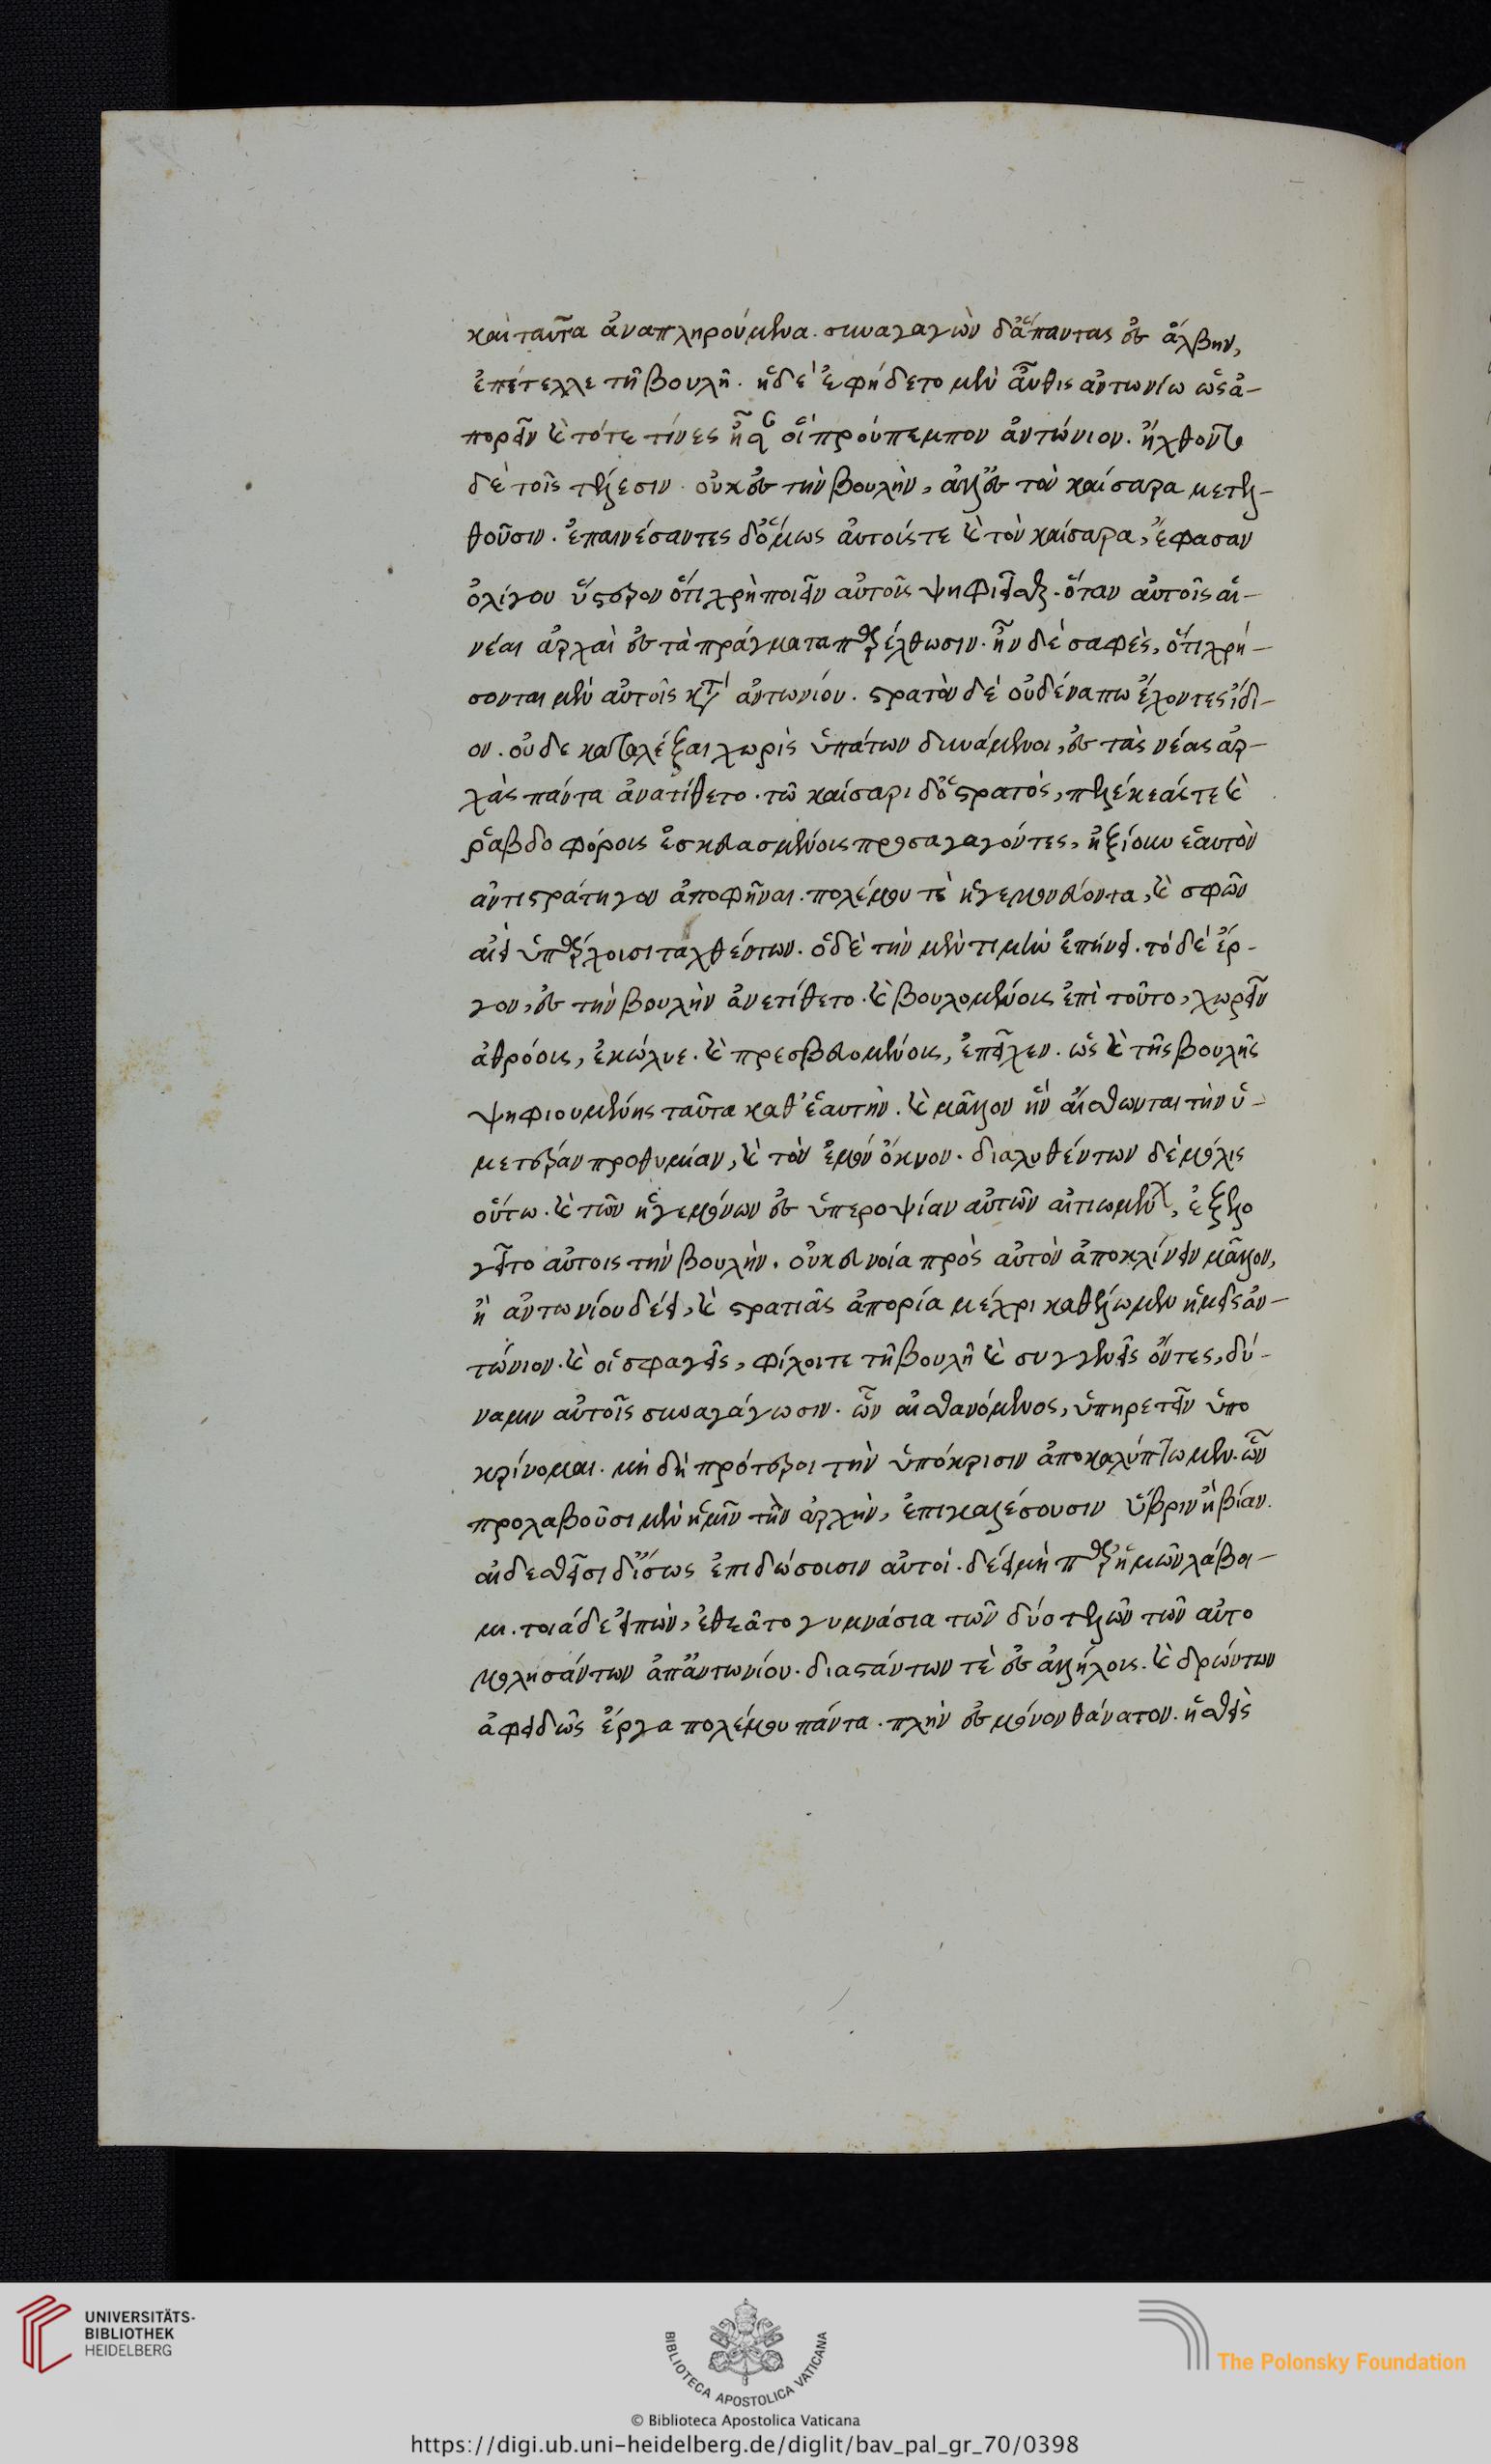 καὶ ταῦτα ἀναπληρούμενα. συναγαγὼν δ' ἅπαντας ἐς ἄλβην,
ἐπέτελλε τῆ βουλῆ. ἡ δε' ἐφήδετο μὲν αὖθις ἀντωνίω ὡς ἀ-
πορεῖν καὶ τότε τίνες ἦσαν οἳ προύπεμπον ἀντώνιον. ἤχθοντο
δὲ τοῖς τέλεσιν. οὐκ ἐς τὴν βουλὴν, ἀλλ' ἐς τὸν καίσαρα μετελ-
θοῦσιν. ἐπαινέσαντες δ' ὅμως αὐτούς τε καὶ τὸν καίσαρα, ἔφασαν
ὀλίγου ὕστερον ὅτι χρὴ ποιεῖν αὐτοῖς ψηφιεῖσθαι. ὅταν αὐτοῖς αἱ-
νέαι ἀρχαὶ ἐς τὰ πράγματα παρέλθωσιν. ἦν δὲ σαφὲς, ὅτι χρή-
σονται μὲν αὐτοῖς κατ' ἀντωνίου. στρατὸν δὲ οὐδένα πω ἔχοντες ἴδι-
ον. οὐδε καταλέξαι χωρὶς ὑπάτων δυνάμενοι, ἐς τὰς νέας ἀρ-
χὰς πάντα ἀνατίθετο. τῶ καίσαρι δ' ὁ στρατὸς, πελέκεάς τε καὶ
ῥαβδοφόροις ἐσκευασμένοις προσαγαγόντες, ἠξίουν ἑαυτὸν
ἀντιστράτηγον ἀποφῆναι. πολέμου τὲ ἡγεμονεύοντα, καὶ σφῶν
αἰεὶ ὑπ' ἄρχουσι ταχθέντων. ὁ δὲ τὴν μὲν τιμὴν ἐπήνει. τὸ δὲ ἔρ-
γον, ἐς τὴν βουλὴν ἀνετίθετο. καὶ βουλομένοις ἐπὶ τοῦτο, χωρεῖν
ἀθρόοις, ἐκώλυε. καὶ πρεσβευομένοις, ἐπεῖχεν. ὡς καὶ τῆς βουλῆς
ψηφιουμένης ταῦτα καθ' ἑαυτὴν. καὶ μᾶλλον ἢν αἴσθωνται τὴν ὑ-
μετέραν προθυμίαν, καὶ τὸν ἐμὸν ὄκνον. διαλυθέντων δὲ μόλις
οὕτω. καὶ τῶν ἡγεμόνων ἐς ὑπεροψίαν αὐτῶν αἰτιωμένων, ἐξελο
γεῖτο αὐτοις τὴν βουλὴν. οὐκ εὐνοία πρὸς αὐτὸν ἀποκλίνειν μᾶλλον,
ἢ ἀντωνίου δέει, καὶ στρατιᾶς ἀπορία μέχρι καθέλωμεν ἡμεῖς ἀν-
τώνιον. καὶ οἱ σφαγεῖς, φίλοι τε τῆ βουλῆ καὶ συγγενεῖς ὄντες, δύ-
ναμιν αὐτοῖς συναγάγωσιν. ὧν αἰσθανόμενος, ὑπηρετεῖν ὑπο
κρίνομαι. μὴ δὴ πρότεροι τὴν ὑπόκρισιν ἀποκαλύπτωμεν. ὧν
προλαβοῦσι μὲν ἡμῖν τὴν ἀρχὴν, ἐπικαλέσουσιν ὕβριν ἢ βίαν.
αἰδεσθεῖσι δ' ἴσως ἐπιδώσουσιν αὐτοὶ. δέει μὴ παρ' ἡμῶν λάβοι-
μι. τοιάδε εἰπὼν, ἐθεᾶτο γυμνάσια τῶν δύο τελῶν τῶν αὐτο
μολησάντων ἀπ' ἀντωνίου. διαστάντων τὲ ἐς ἀλλήλοις. καὶ δρώντων
ἀφειδῶς ἔργα πολέμου πάντα. πλὴν ἐς μόνον θάνατον. ἡσθεὶς
UNIVERSITÄTS-
BIBLIOTHEK
HEIDELBERG
BIBLIOTECA APOSTOLICA VATICANA
The Polonsky Foundation
© Biblioteca Apostolica Vaticana
https://digi.ub.uni-heidelberg.de/diglit/bav_pal_gr_70/0398